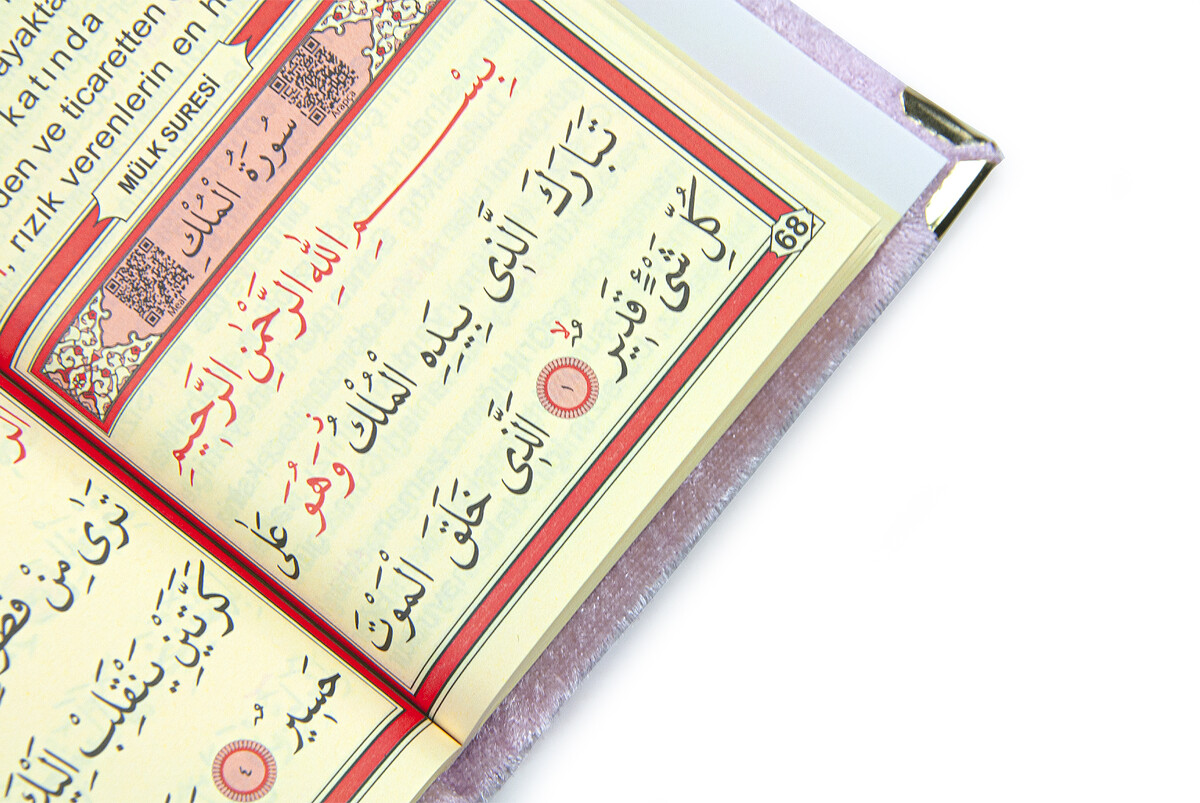 ayakta
katında
den ve ticaretten
, rızık verenlerin en h
MÜLK SURESİ
Arapça
سُورَةُ الْمُلْكِ
Meal
68
بِسْمِ اللّٰهِ الرَّحْمٰنِ الرَّحٖيمِ
تَبَارَكَ الَّذٖى بِيَدِهِ الْمُلْكُ وَهُوَ عَلٰى
كُلِّ شَىْءٍ قَدٖيرٌ ١ اَلَّذٖى خَلَقَ الْمَوْتَ
تَرٰى مِنْ فُطُو
كَرَّتَيْنِ يَنْقَلِبْ اِلَيْكَ
حَسٖيرٌ ٤